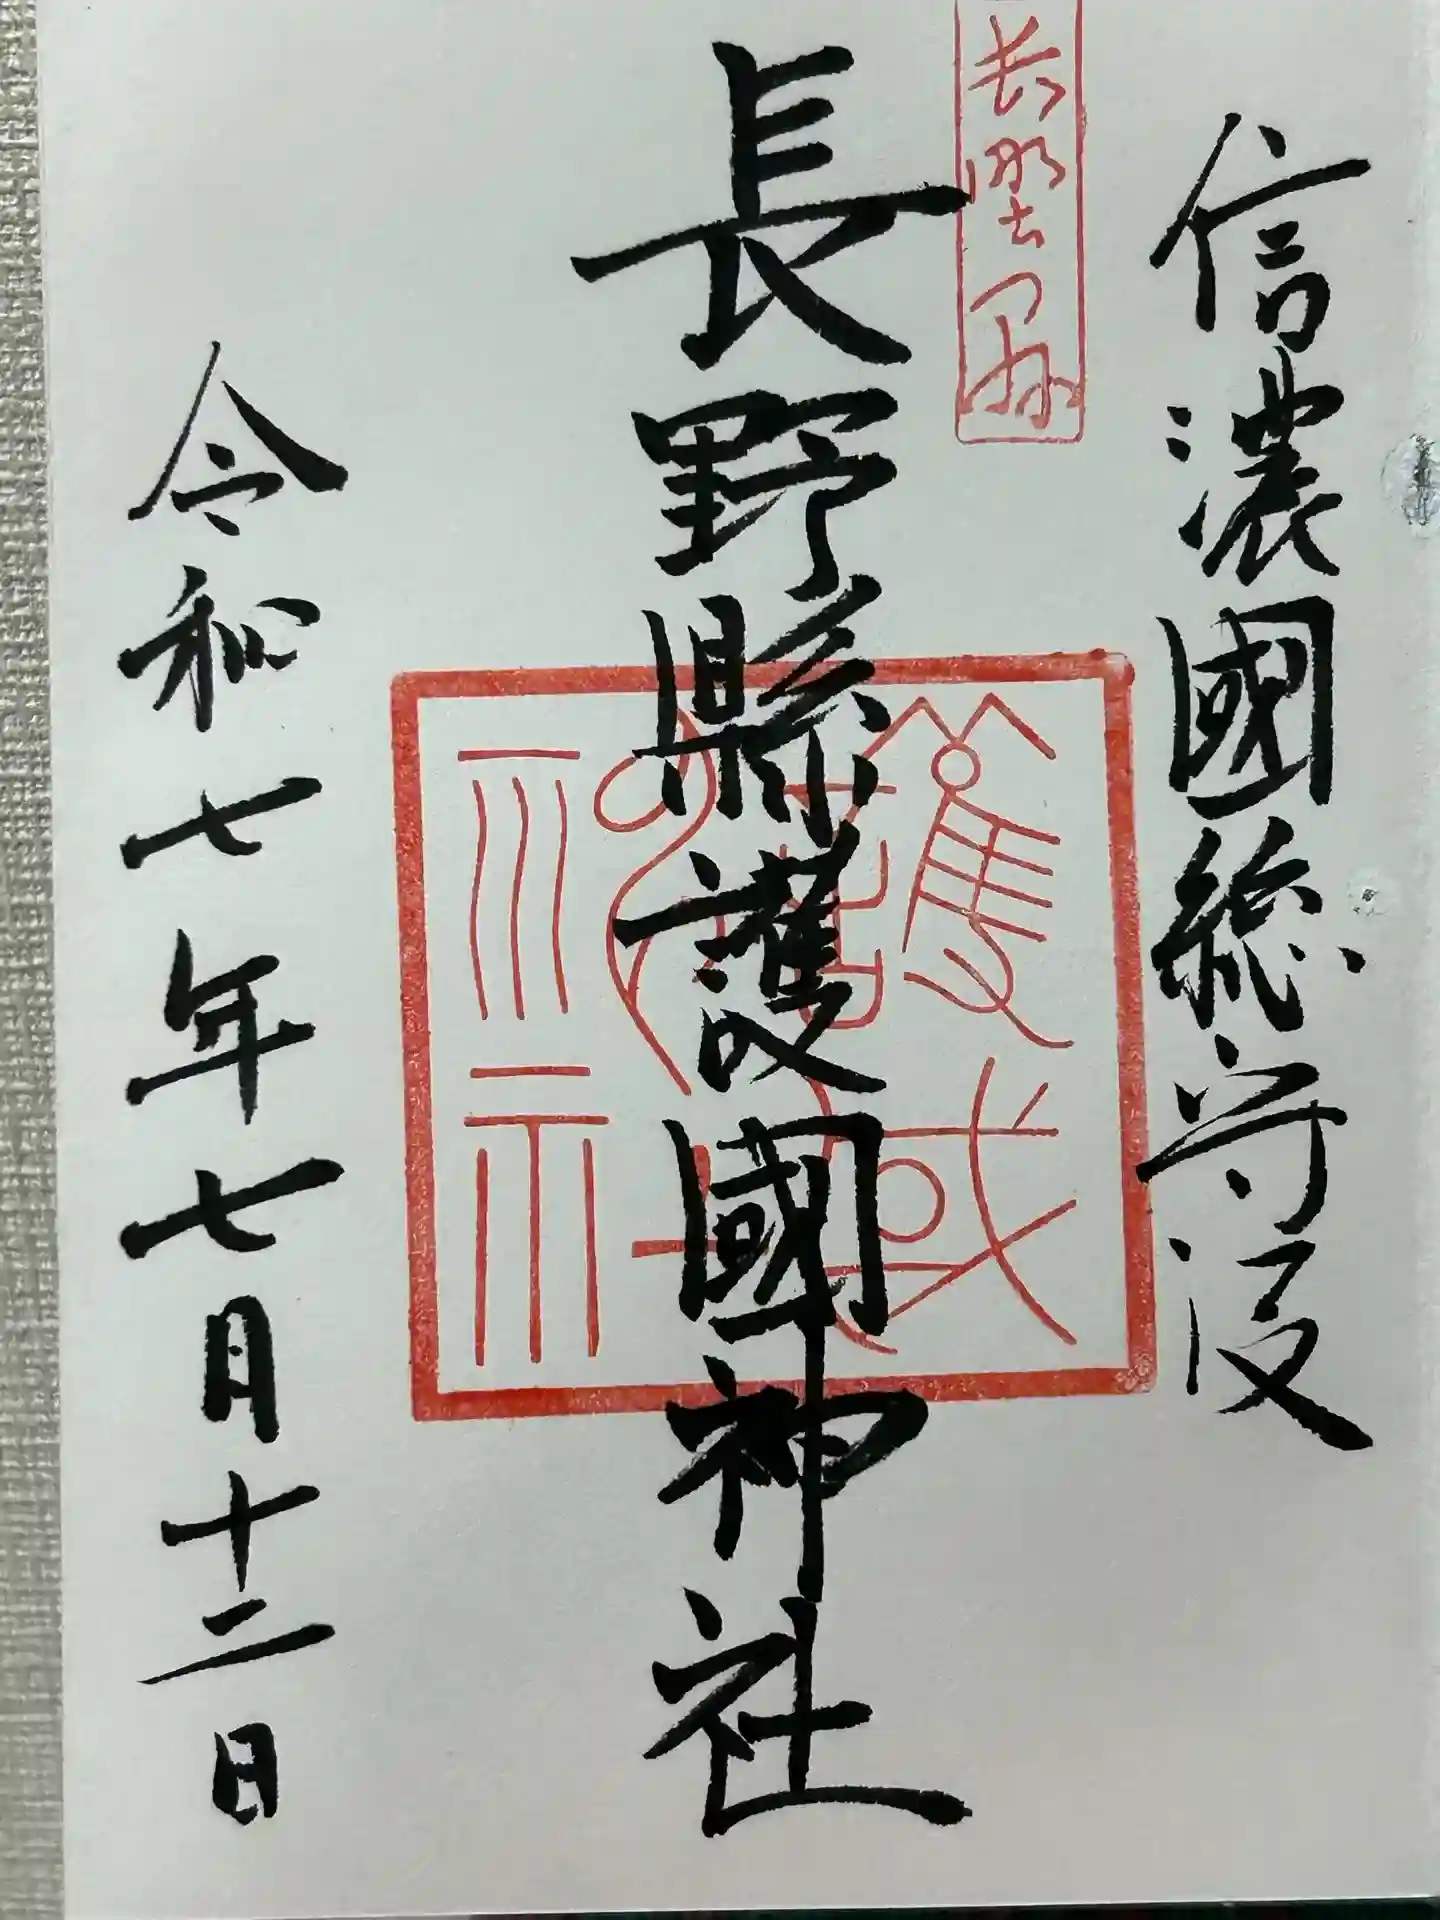 信濃國總守護
長野縣
長野縣護國神社
令和七年七月十二日